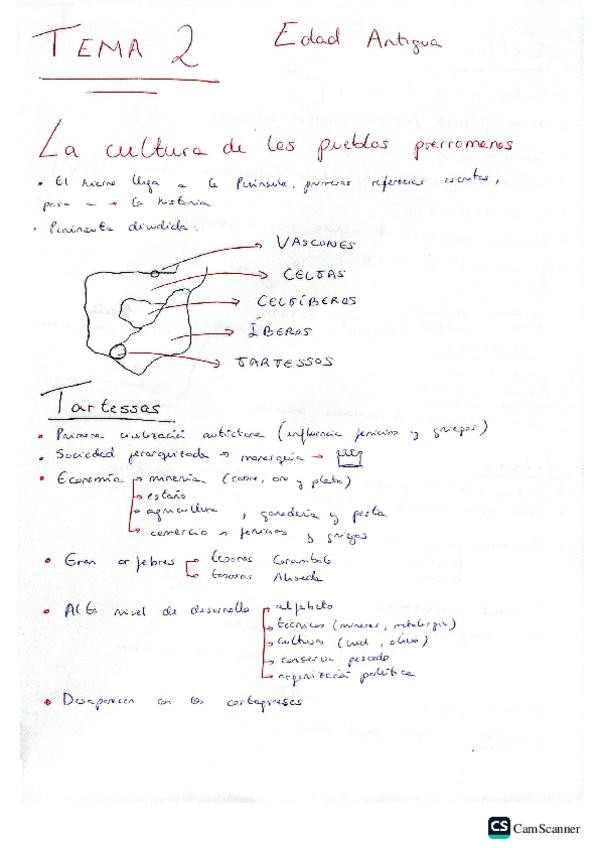 TEMA 2 Edad Antigua
La cultura de los pueblos prerromanos
• El hierro llega a la Península, primeras referencias escritas,
paso a → la historia
• Península dividida:
VASCONES
CELTAS
CELTÍBEROS
ÍBEROS
TARTESSOS
Tartessos
• Primera civilización autóctona (influencia fenicios y griegos)
• Sociedad jerarquizada → monarquía →
• Economía → minería (cobre, oro y plata)
→ estaño
→ agricultura, ganadería y pesca
→ comercio fenicios y griegos
• Gran orfebres → tesoros Carambolo
→ tesoros Aliseda
• Alto nivel de desarrollo → alfabeto
→ técnicas (mineras, metalurgia)
→ cultivos (vid, olivo)
→ conserva pescado
→ organización política
• Desaparecen con los cartagineses
CS CamScanner